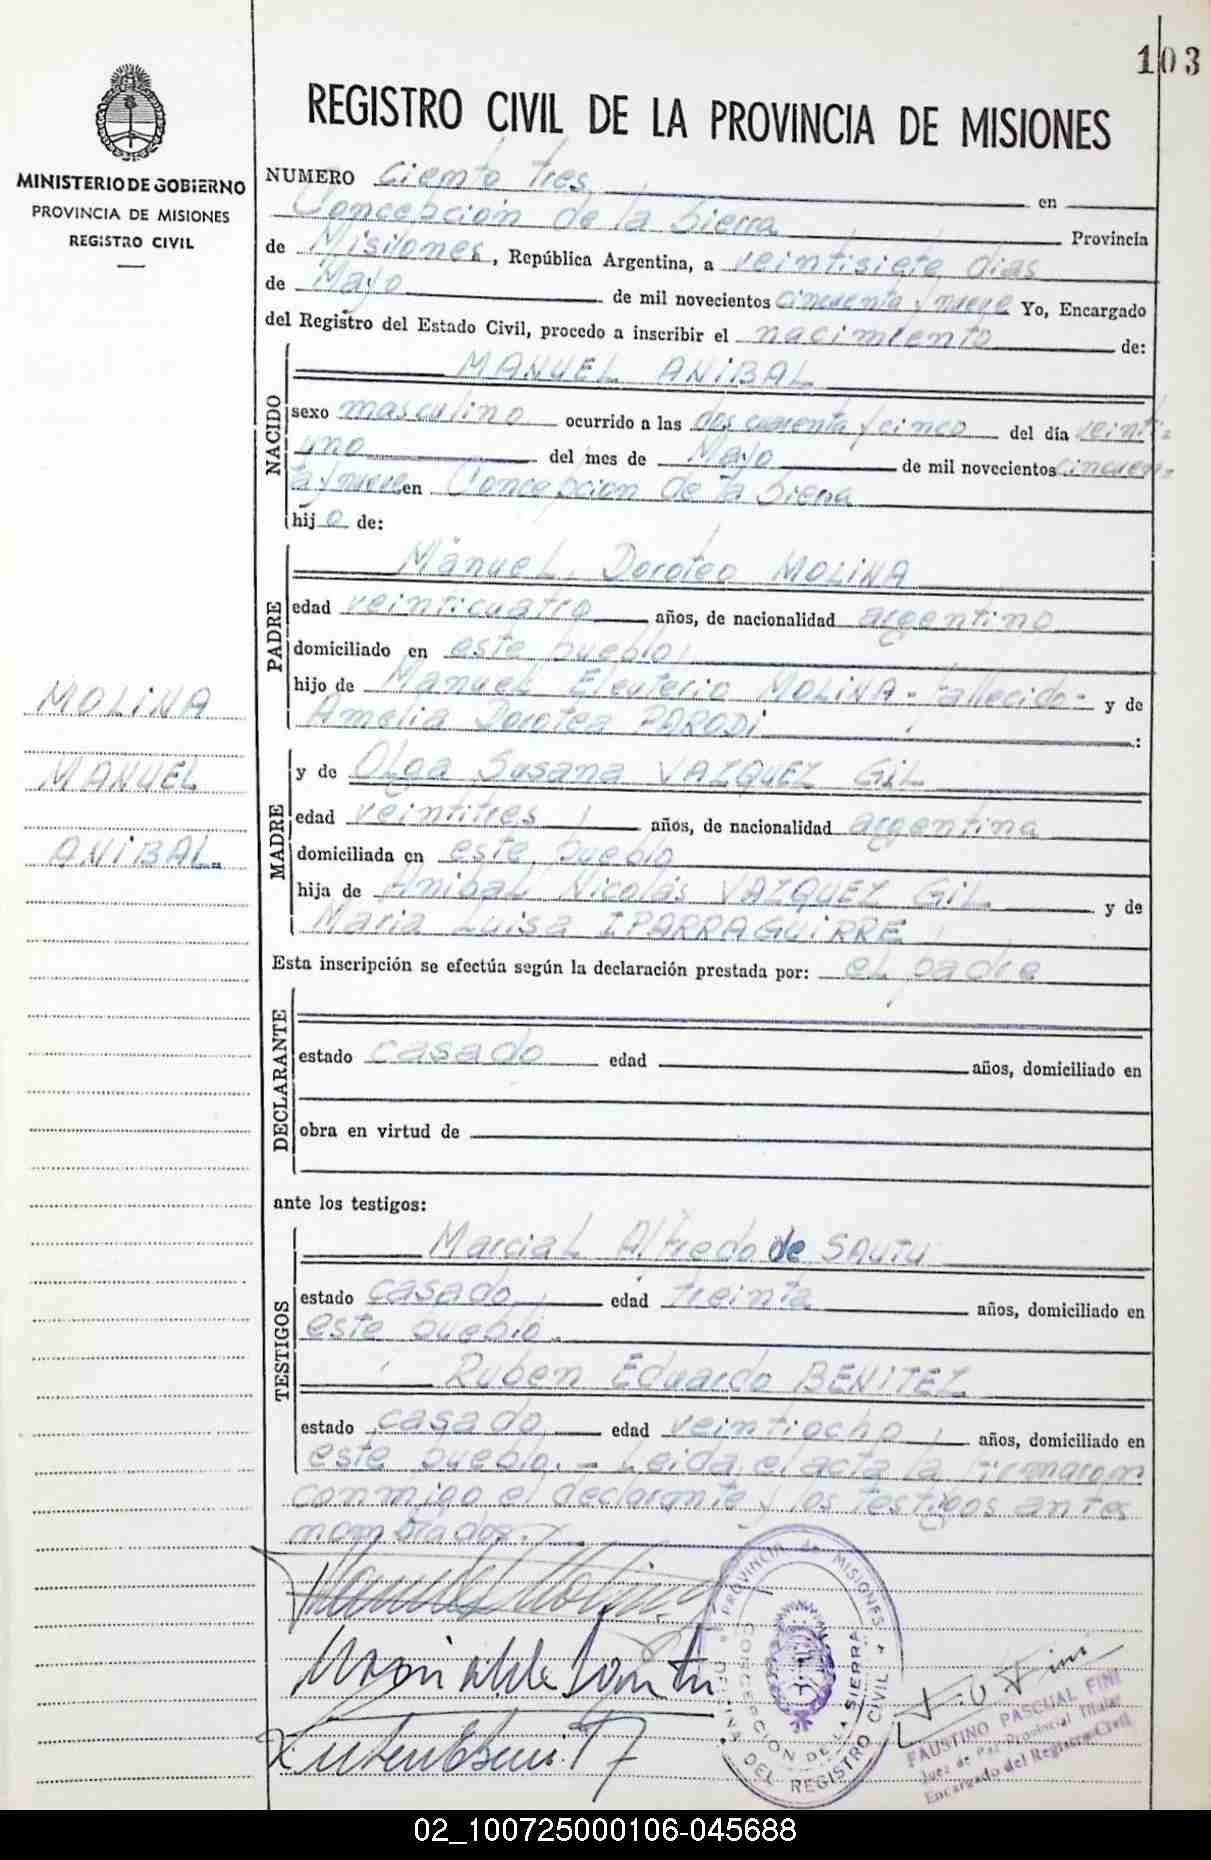 103
REGISTRO CIVIL DE LA PROVINCIA DE MISIONES
MINISTERIO DE GOBIERNO
PROVINCIA DE MISIONES
REGISTRO CIVIL
NUMERO Ciento tres en
Concepcion de la Sierra Provincia
de Misiones, República Argentina, a veintisiete dias
de Mayo de mil novecientos cincuenta y nueve Yo, Encargado
del Registro del Estado Civil, procedo a inscribir el nacimiento de:
NACIDO
MANUEL ANIBAL
sexo masculino ocurrido a las dos cuarenta y cinco del día veinti-
uno del mes de Mayo de mil novecientos cincuen-
ta y nueve en Concepcion de la Sierra
hijo de:
PADRE
Manuel Doroteo MOLINA
edad veinticuatro años, de nacionalidad argentino
domiciliado en este pueblo,
hijo de Manuel Eleuterio MOLINA-fallecido- y de
Amelia Dorotea PARODI :
MOLINA
MANUEL
ANIBAL
MADRE
y de Olga Susana VAZQUEZ GIL
edad veintitres años, de nacionalidad argentina
domiciliada en este pueblo
hija de Anibal Nicolás VAZQUEZ GIL y de
Maria Luisa IPARRAGUIRRE
Esta inscripción se efectúa según la declaración prestada por: el padre
DECLARANTE
estado casado edad años, domiciliado en
obra en virtud de
ante los testigos:
TESTIGOS
Marcial Alfredo de SAUTU
estado casado edad treinta años, domiciliado en
este pueblo.
Ruben Eduardo BENITEZ
estado casado edad veintiocho años, domiciliado en
este pueblo.- Leida el acta la firmaron
conmigo el declarante y los testigos antes
nombrados.
PROVINCIA de MISIONES
CONCEPCION DE LA SIERRA
OFICINA DEL REGISTRO CIVIL
FAUSTINO PASCUAL FINI
Juez de Paz Provincial Titular
Encargado del Registro Civil
02_100725000106-045688